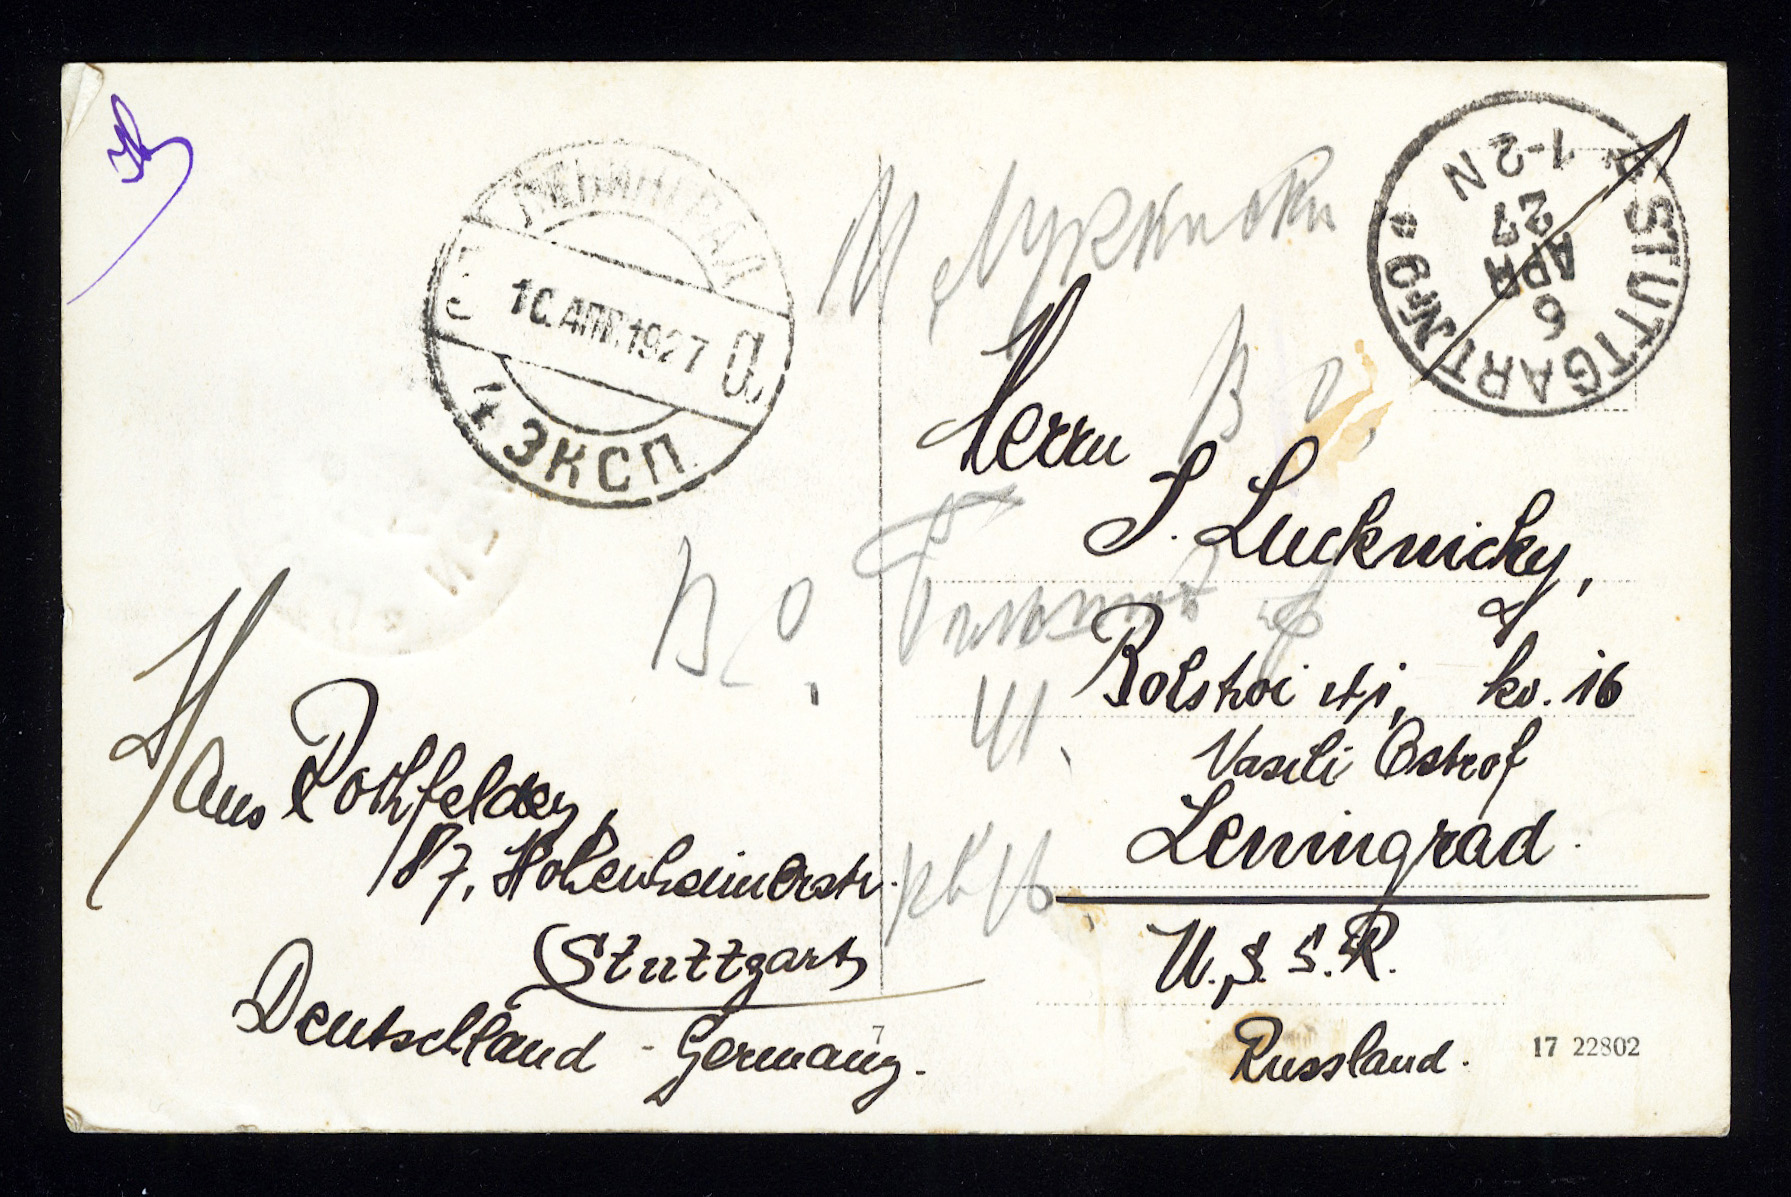 ЛЕНИНГРАД
10.АПР.1927
4 ЭКСП
STUTTGART № 9
6
APR
27
1-2 N
В О
Herrn
S. Lucknicky,
В. О.
Bolshoi 41, kv. 16
41.
Vasili Ostrof
Leningrad.
кв 16
U.S.S.R.
Russland.
Hans Rothfelder,
87, Hohenheimerstr.
Stuttgart
Deutschland - Germany.
7
17 22802